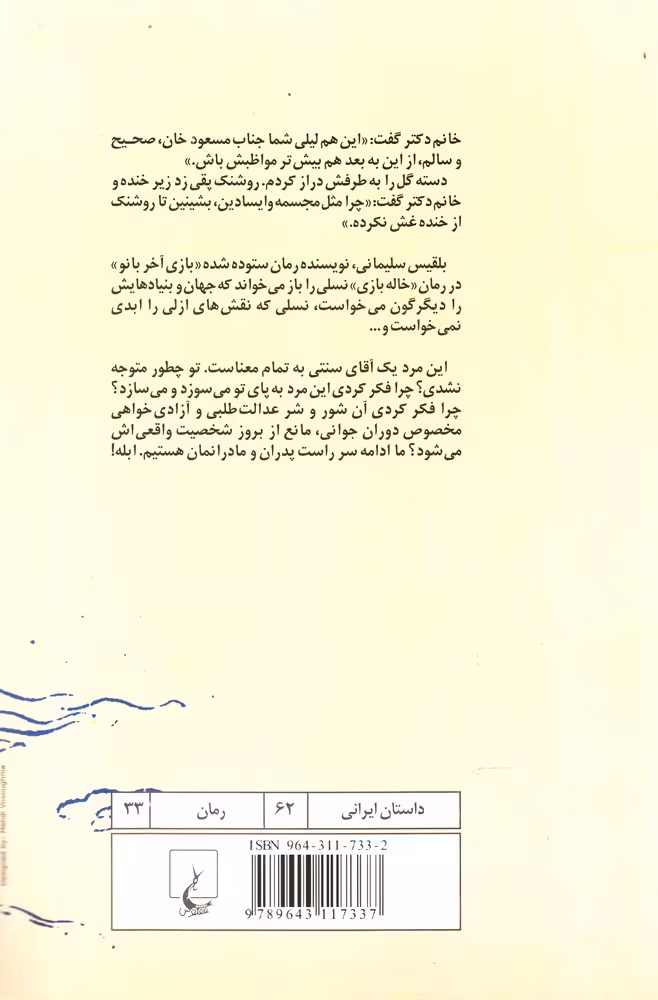 خانم دکتر گفت: «این هم لیلی شما جناب مسعود خان، صحیح
و سالم، از این به بعد هم بیش‌تر مواظبش باش.»
دسته گل را به طرفش دراز کردم. روشنک پقی زد زیر خنده و
خانم دکتر گفت: «چرا مثل مجسمه وایسادین، بشینین تا روشنک
از خنده غش نکرده.»
بلقیس سلیمانی، نویسنده رمان ستوده شده «بازی آخر بانو»
در رمان «خاله بازی» نسلی را باز می‌خواند که جهان و بنیادهایش
را دیگرگون می‌خواست، نسلی که نقش‌های ازلی را ابدی
نمی‌خواست و...
این مرد یک آقای سنتی به تمام معناست. تو چطور متوجه
نشدی؟ چرا فکر کردی این مرد به پای تو می‌سوزد و می‌سازد؟
چرا فکر کردی آن شور و شر عدالت‌طلبی و آزادی‌خواهی
مخصوص دوران جوانی، مانع از بروز شخصیت واقعی‌اش
می‌شود؟ ما ادامه سر راست پدران و مادرانمان هستیم. ابله!
داستان ایرانی ۶۲ رمان ۳۳
ISBN 964-311-733-2
9 789643 117337
ققنوس
Designed by: Mehdi Vosoughnia